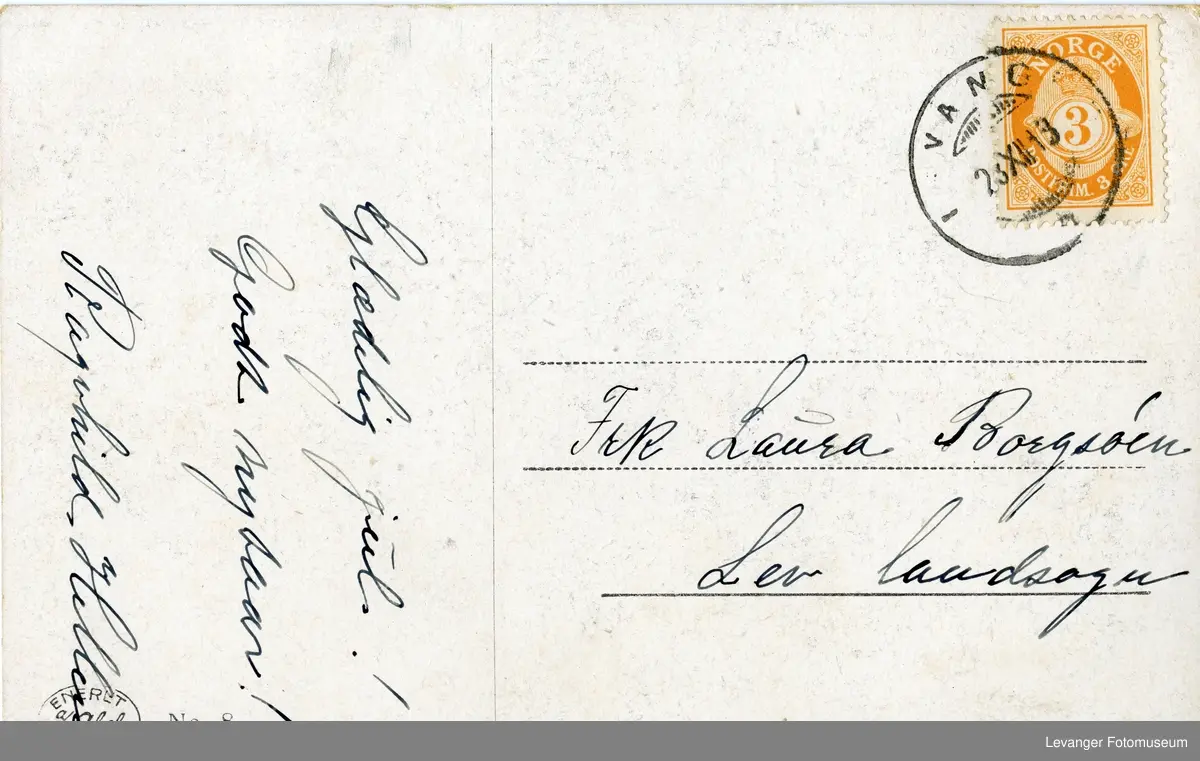 Glædelig jul!
Godt nytaar!
Ragnhild
ENERET
No. 8
NORGE
3
POSTFRIM. 3 ØRE
VANG
23 XII 13
Frk Laura Borgsóen
Lev landsogn
Levanger Fotomuseum